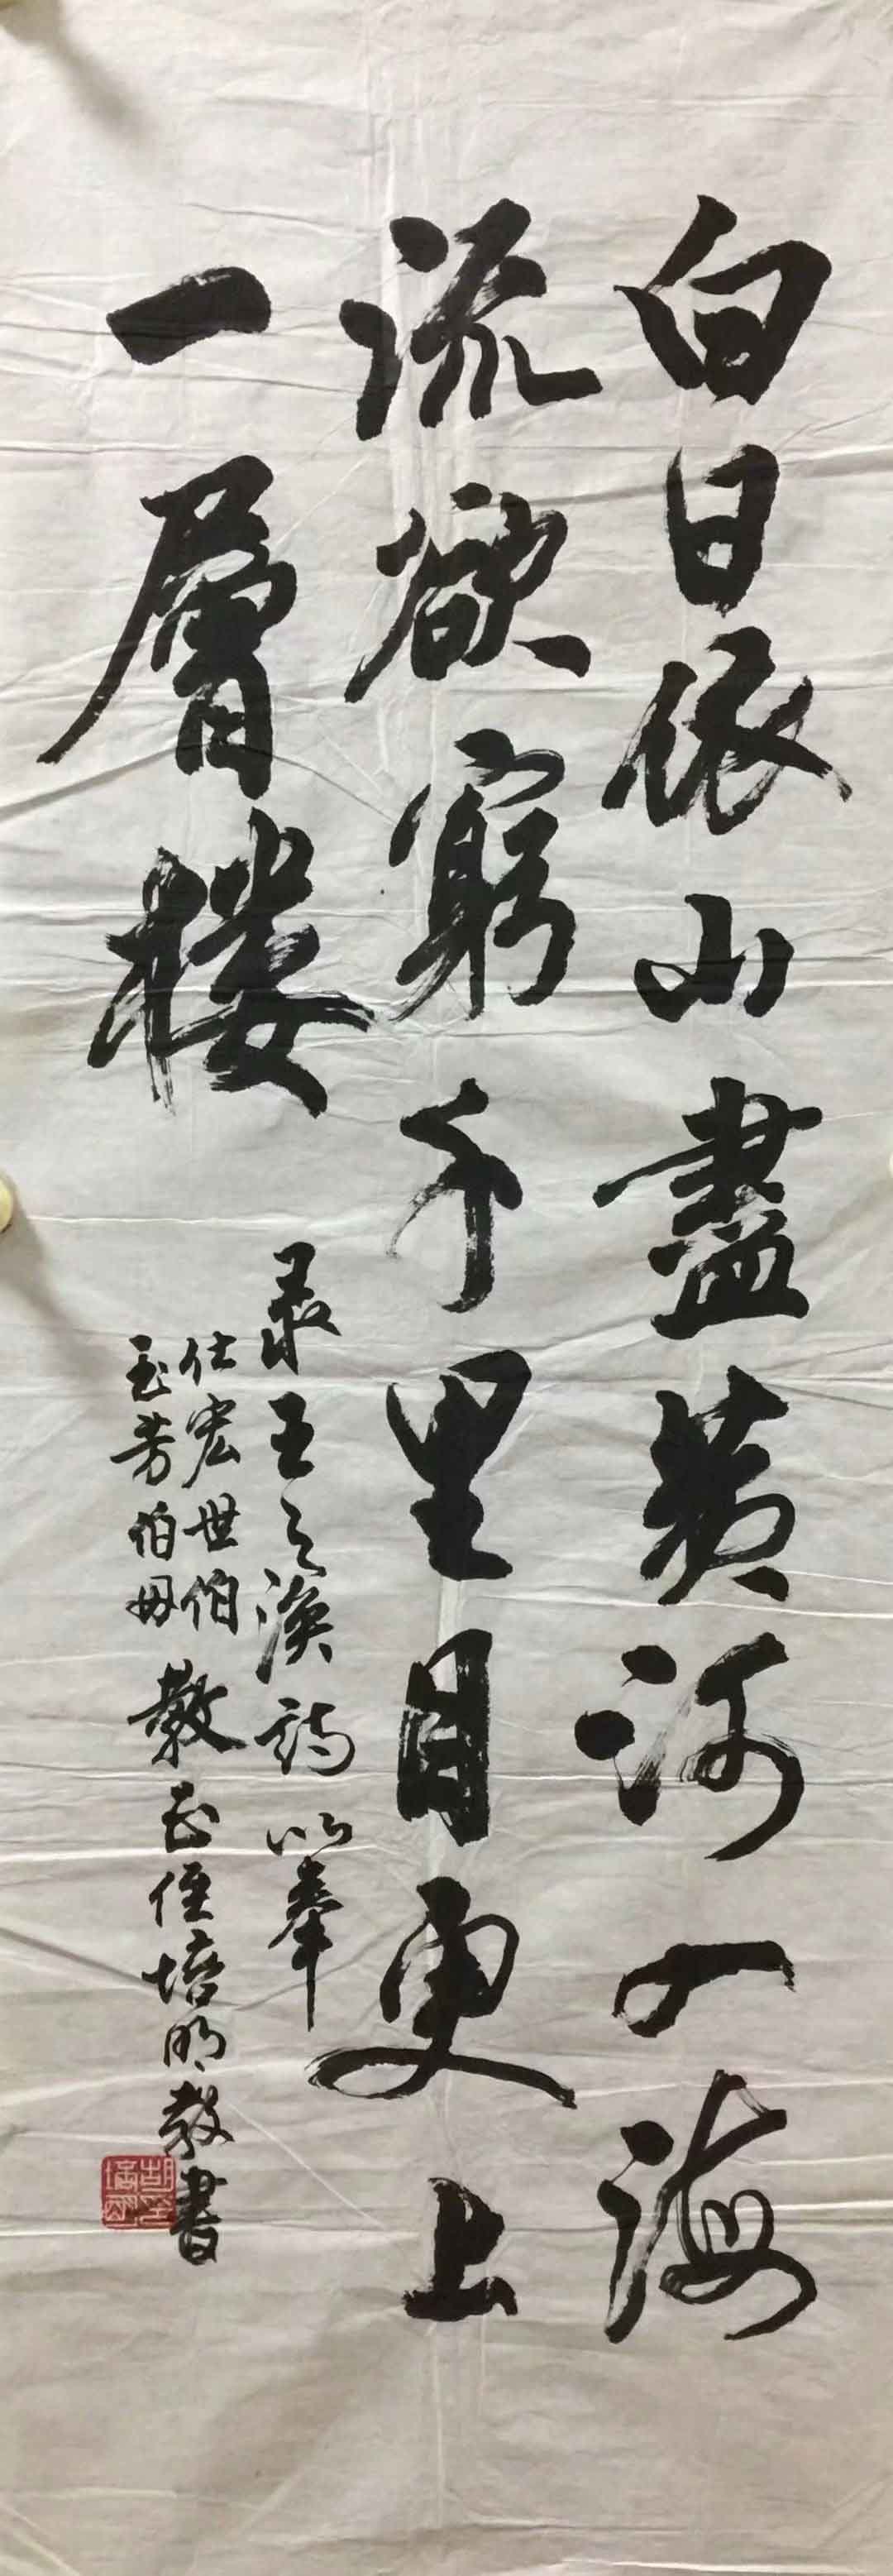 白日依山盡黄河入海
流欲窮千里目更上
一層楼
录王之渙詩以奉
仕宏世伯
玉芳伯母
教正侄培明敬書